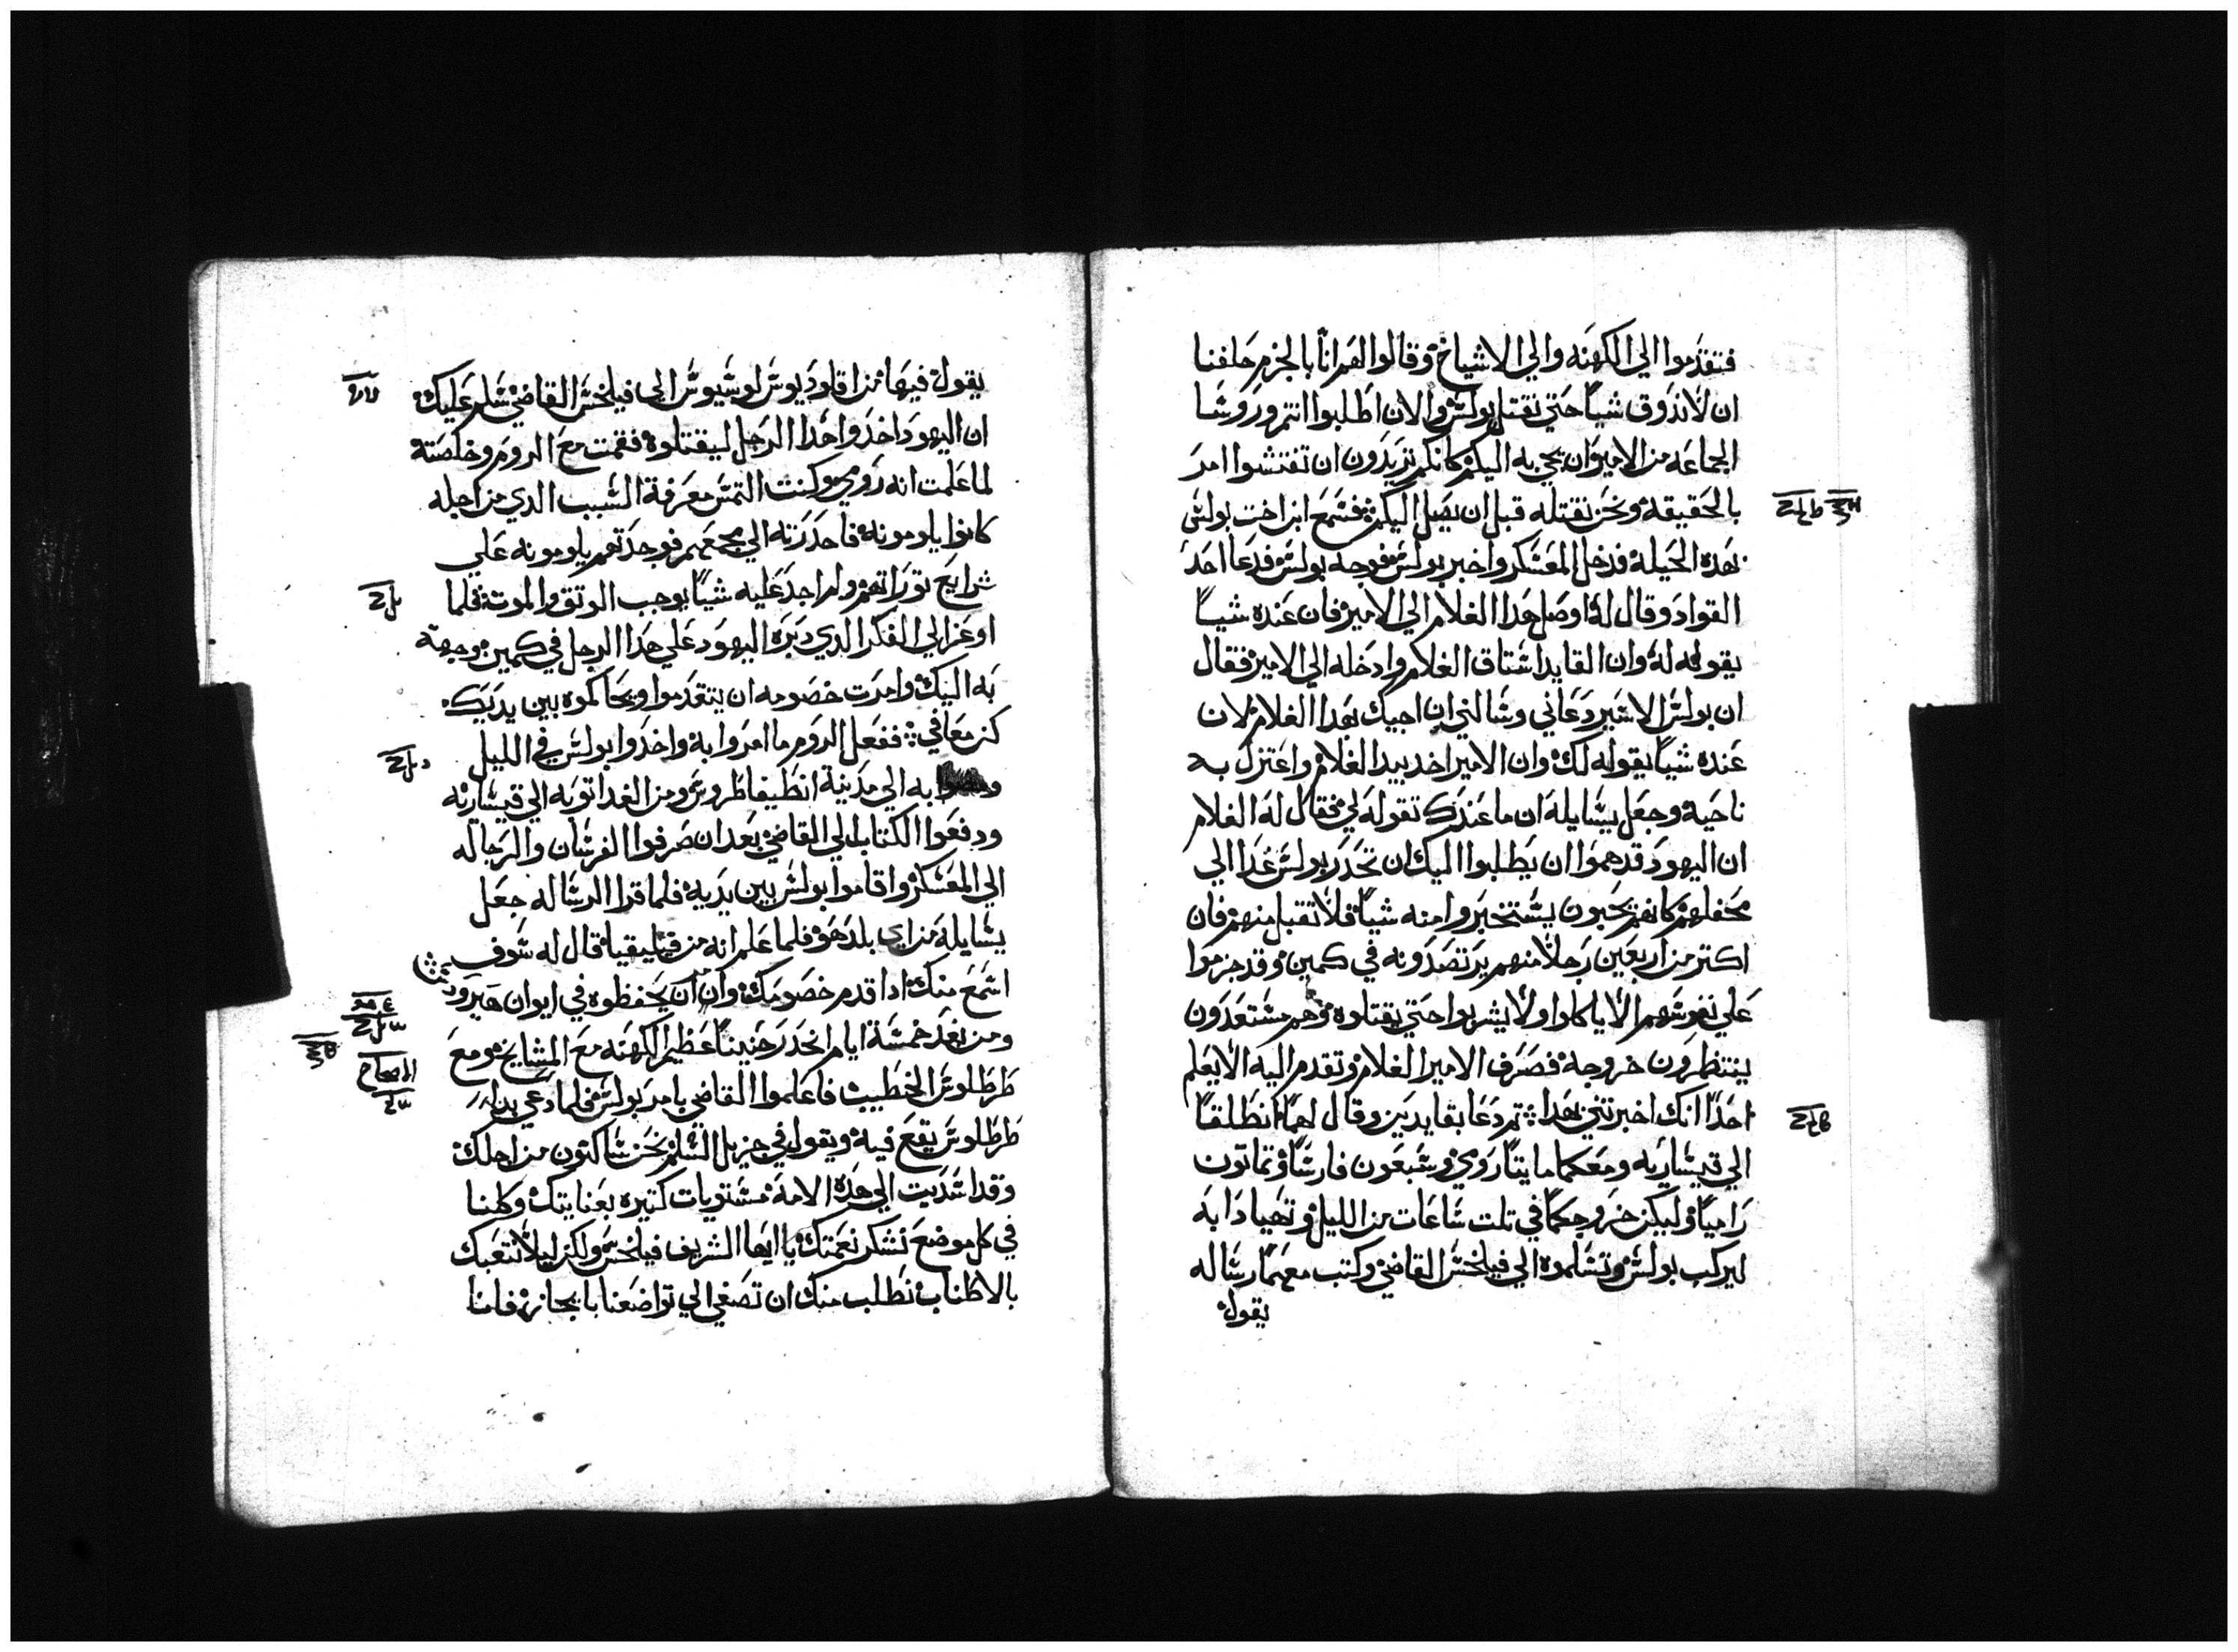 فتقدموا الي الكهنه والي الاشياخ وقالوا لهم اننا بالجزم حلفنا
ان لا نذوق شيا حتي نقتل بولس والان اطلبوا انتم وروسا
الجماعه من الامير ان يجي به اليكم كانكم تريدون ان تفتشوا امره
بالحقيقة ونحن نقتله قبل ان يصل اليكم فسمع ابن اخت بولس
بهده الحيلة فدخل المعسكر واخبر بولس فوجه بولس فدعا احد
القواد وقال له اوصل هدا الغلام الي الامير فان عنده شيا
يقوله له وان القايد اشتاق الغلام وادخله الي الامير فقال
ان بولس الاسير دعاني وسالني ان اجيك بهدا الغلام لان
عنده شيا يقوله لك وان الامير اخد بيد الغلام واعتزل به
ناحية وجعل يسايله ان ما عندك تقوله لي فقال له الغلام
ان اليهود قد هموا ان يطلبوا اليك ان تحدر بولس غدا الي
محفلهم كانهم يحبون يستخبروا منه شيا فلا تقبل منهم فان
اكتر من اربعين رجلا منهم يرتصدونه في كمين وقد جزموا
علي نفوسهم الا ياكلوا ولا يشربوا حتي يقتلوه وهم مستعدون
ينتظرون خروجه فصرف الامير الغلام وتقدم اليه الا يعلم
احدا انك اخبرتني بهدا تم دعا بقايدين وقال لهما انطلقا
الي قيساريه ومعكما مايتا رومي وسبعون فارسا وتماتون
راميا وليكن خروجكما في تلت ساعات من الليل وتهيا دابه
ليركب بولس وتسلموه الي فيلخس القاضي وكتب معهما رساله
يقول
يقول فيها من اقلوديوس لوسيوس الي فيلخس القاضي سلم عليك
ان اليهود اخدوا هدا الرجل ليقتلوه فقمت مع الروم وخلصته
لما علمت انه رومي وكنت التمس معرفة السبب الدي من اجله
كانوا يلومونه فاحدرته الي مجمعهم فوجدتهم يلومونه علي
شرايع توراتهم ولم اجد عليه شيا يوجب الوتق والموت فلما
اوعز الي الفكر الدي دبره اليهود علي هدا الرجل في كمين وجهته
به اليك وامرت خصومه ان يتقدموا ويحاكموه بين يديك
كن معافي ففعل الروم ما امروا به واخدوا بولس في الليل
به الي مدينة انطيفاطروس ومن الغد اتو به الي قيساريه
ودفعوا الكتاب الي القاضي بعد ان صرفوا الفرسان والرجاله
الي المعسكر واقاموا بولس بين يديه فلما قرا الرساله جعل
يسايله من اي بلد هو فلما علم انه من قيليقيا قال له سوف
اسمع منك ادا قدم خصومك وان ان يحفظوه في ايوان هيرودس
ومن بعد خمسة ايام انحدر حنينا عظيم الكهنه مع المشايخ ومع
طرطلوس الخطيب فاعلموا القاضي بامر بولس فلما دعي بدا
طرطلوس يقع فيه ويقول في جزيل السلم نحن ساكنون من اجلك
وقد اسديت الي هده الامة مستويات كتيره بعنايتك وكلنا
في كل موضع نشكر نعمتك يا ايها الشريف فيلخس ولكن ليلا نتعبك
بالاطناب نطلب منك ان تصغي الي تواضعنا بايجاز فاننا
الاصحاح